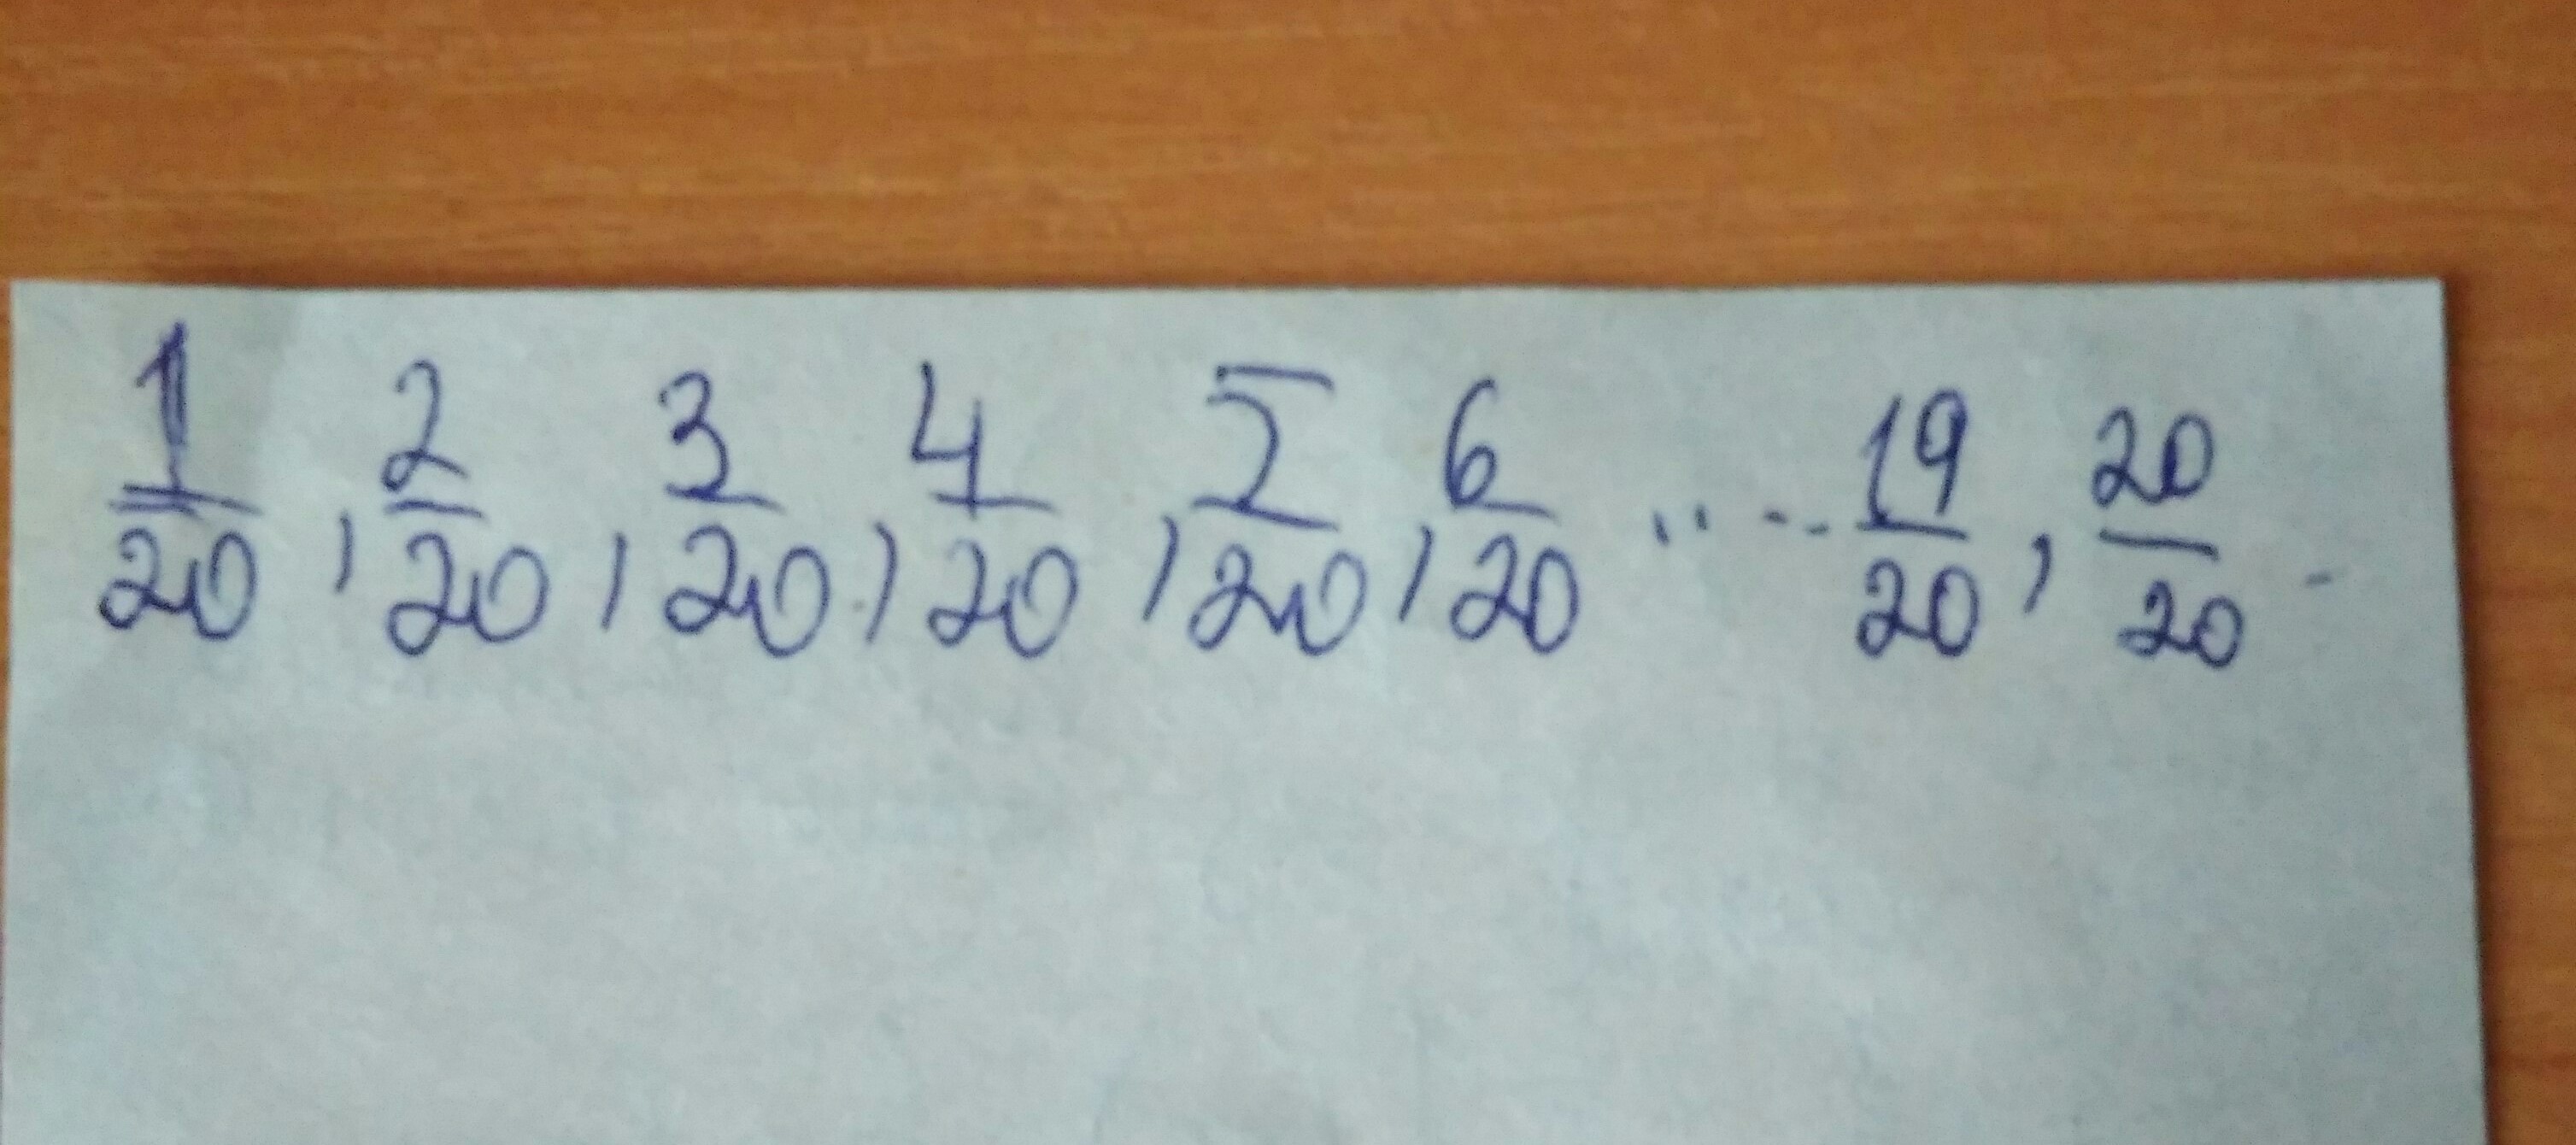 1/20, 2/20, 3/20, 4/20, 5/20, 6/20 ..... 19/20, 20/20